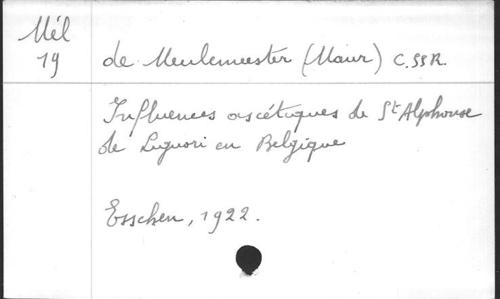 Mél
19
de Meulemeester (Maur) C.SS.R.
Influences ascétiques de St Alphonse
de Liguori en Belgique
Esschen, 1922.